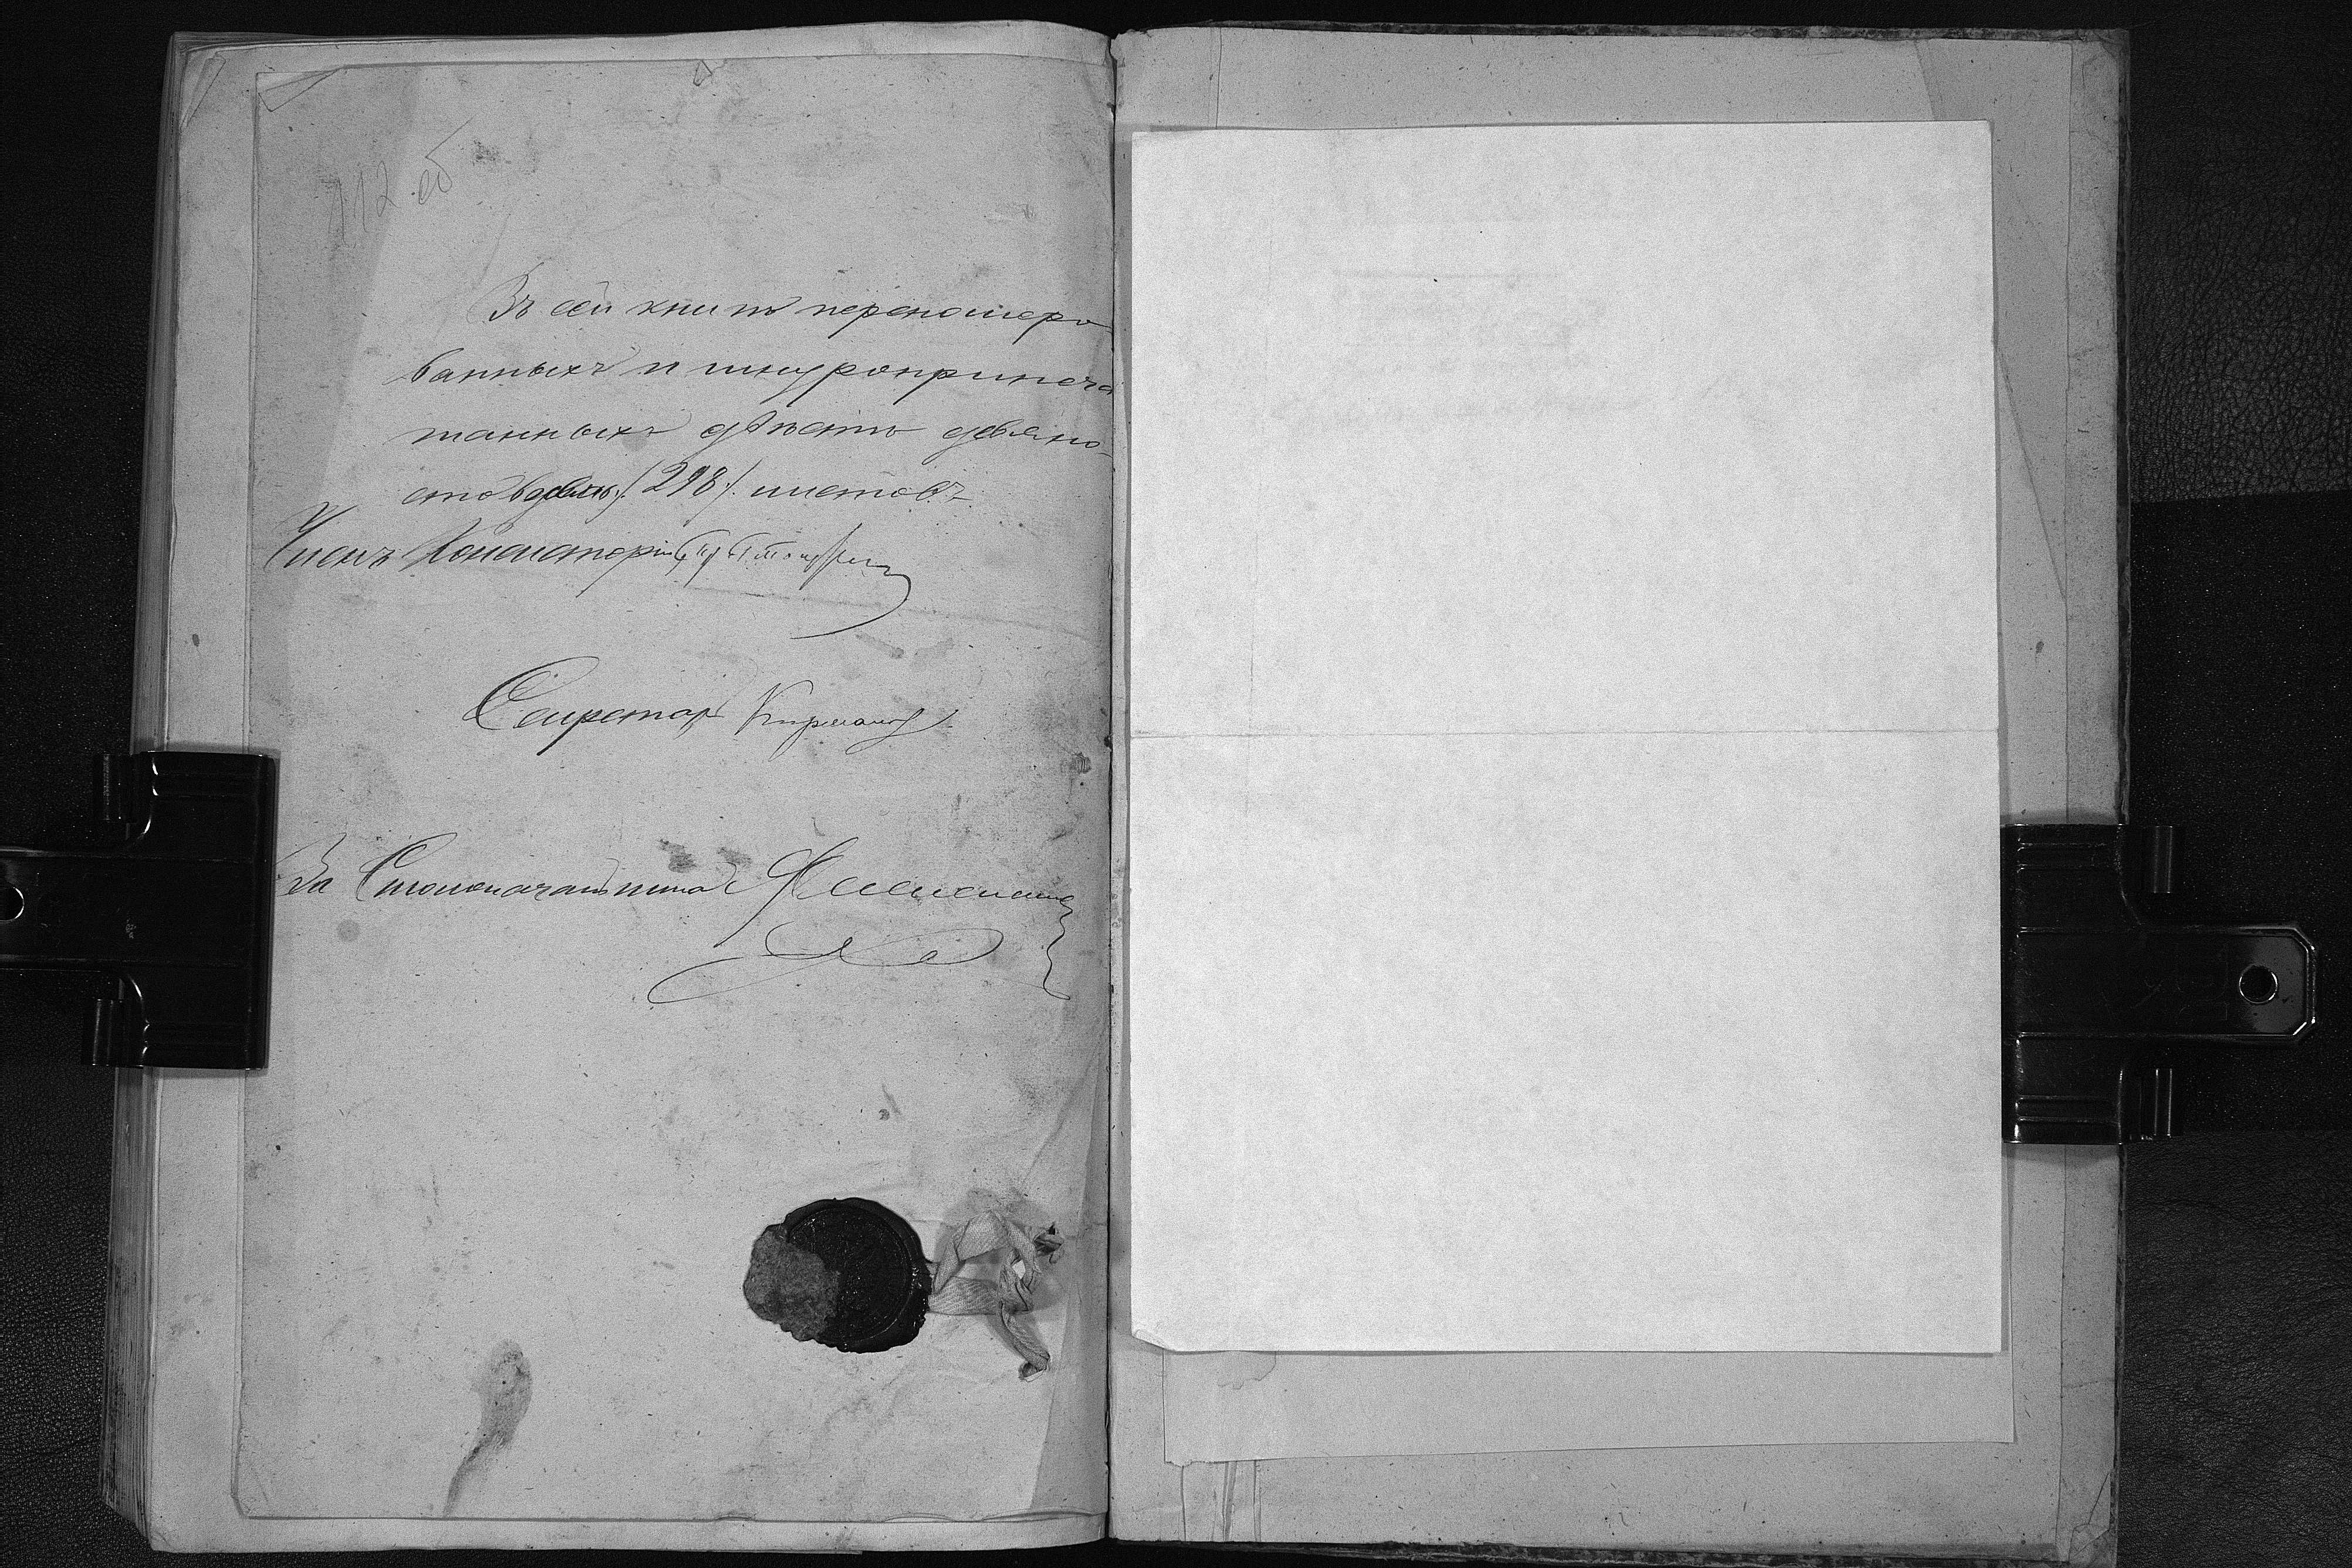 112 об
Въ сей книгѣ переномеро
ванныхъ и шнуроприпеча
танныхъ двѣсти девяно-
сто восемь /298/. листовъ
Членъ Консисторіи
Секретарь
За Столоначальника